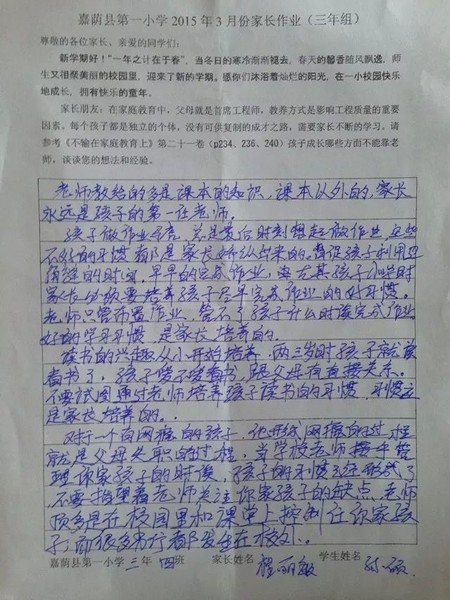 嘉荫县第一小学2015年3月份家长作业（三年组）
尊敬的各位家长、亲爱的同学们：
新学期好！"一年之计在于春"，当冬日的寒冷渐渐褪去，春天的馨香随风飘逸，师
生又相聚美丽的校园里，迎来了新的学期。愿你们沐浴着灿烂的阳光，在一小校园快乐
地成长，拥有快乐的童年。
家长朋友：在家庭教育中，父母就是首席工程师，教养方式是影响工程质量的重要
因素。每个孩子都是独立的个体，没有可供复制的成才之路，需要家长不断的学习。请
参考《不输在家庭教育上》第二十一卷（p234、236、240）孩子成长哪些方面不能靠老
师，谈谈您的想法和经验。
老师教给的多是课本的知识，课本以外的，家长
永远是孩子的第一任老师。
孩子做作业总是最后时刻想起做作业，这些
不好的习惯都是家长娇纵出来的。督促孩子利用边
角缝的时间，早早的完成作业，尤其孩子小学时
家长必须要培养孩子尽早完成作业的好习惯。
老师只管布置作业，管不了孩子什么时候完成作业
好的学习习惯，是家长培养的。
读书的兴趣从小开始培养，两三岁时孩子就该
看书了，孩子爱不爱看书，跟父母有直接关系。
不要试图通过老师培养孩子读书的习惯，习惯
是家长培养的。
对于一个有网瘾的孩子，他形成网瘾的过程
就是父母失职的过程，当学校老师接手管
理你家孩子的时候，孩子的习惯已经形成了
不要指望着老师关注你家孩子的缺点，老师
顶多是在校园里和课堂上控制住你家孩
子，而很多行都发生在校外。
嘉荫县第一小学 三 年 四 班 家长姓名 学生姓名